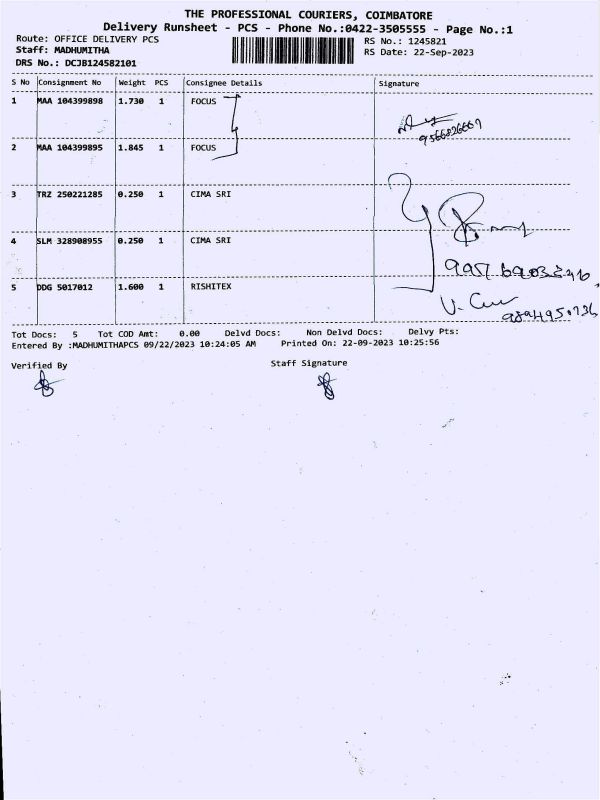 THE PROFESSIONAL COURIERS, COIMBATORE
Delivery Runsheet - PCS - Phone No.:0422-3505555 - Page No.:1
Route: OFFICE DELIVERY PCS RS No.: 1245821
Staff: MADHUMITHA RS Date: 22-Sep-2023
DRS No.: DCJB124582101
S No Consignment No Weight PCS Consignee Details Signature
1 MAA 104399898 1.730 1 FOCUS
9566826667
2 MAA 104399895 1.845 1 FOCUS
3 TRZ 250221285 0.250 1 CIMA SRI
4 SLM 328908955 0.250 1 CIMA SRI
5 DDG 5017012 1.600 1 RISHITEX
Tot Docs: 5 Tot COD Amt: 0.00 Delvd Docs: Non Delvd Docs: Delvy Pts:
Entered By :MADHUMITHAPCS 09/22/2023 10:24:05 AM Printed On: 22-09-2023 10:25:56
Verified By Staff Signature